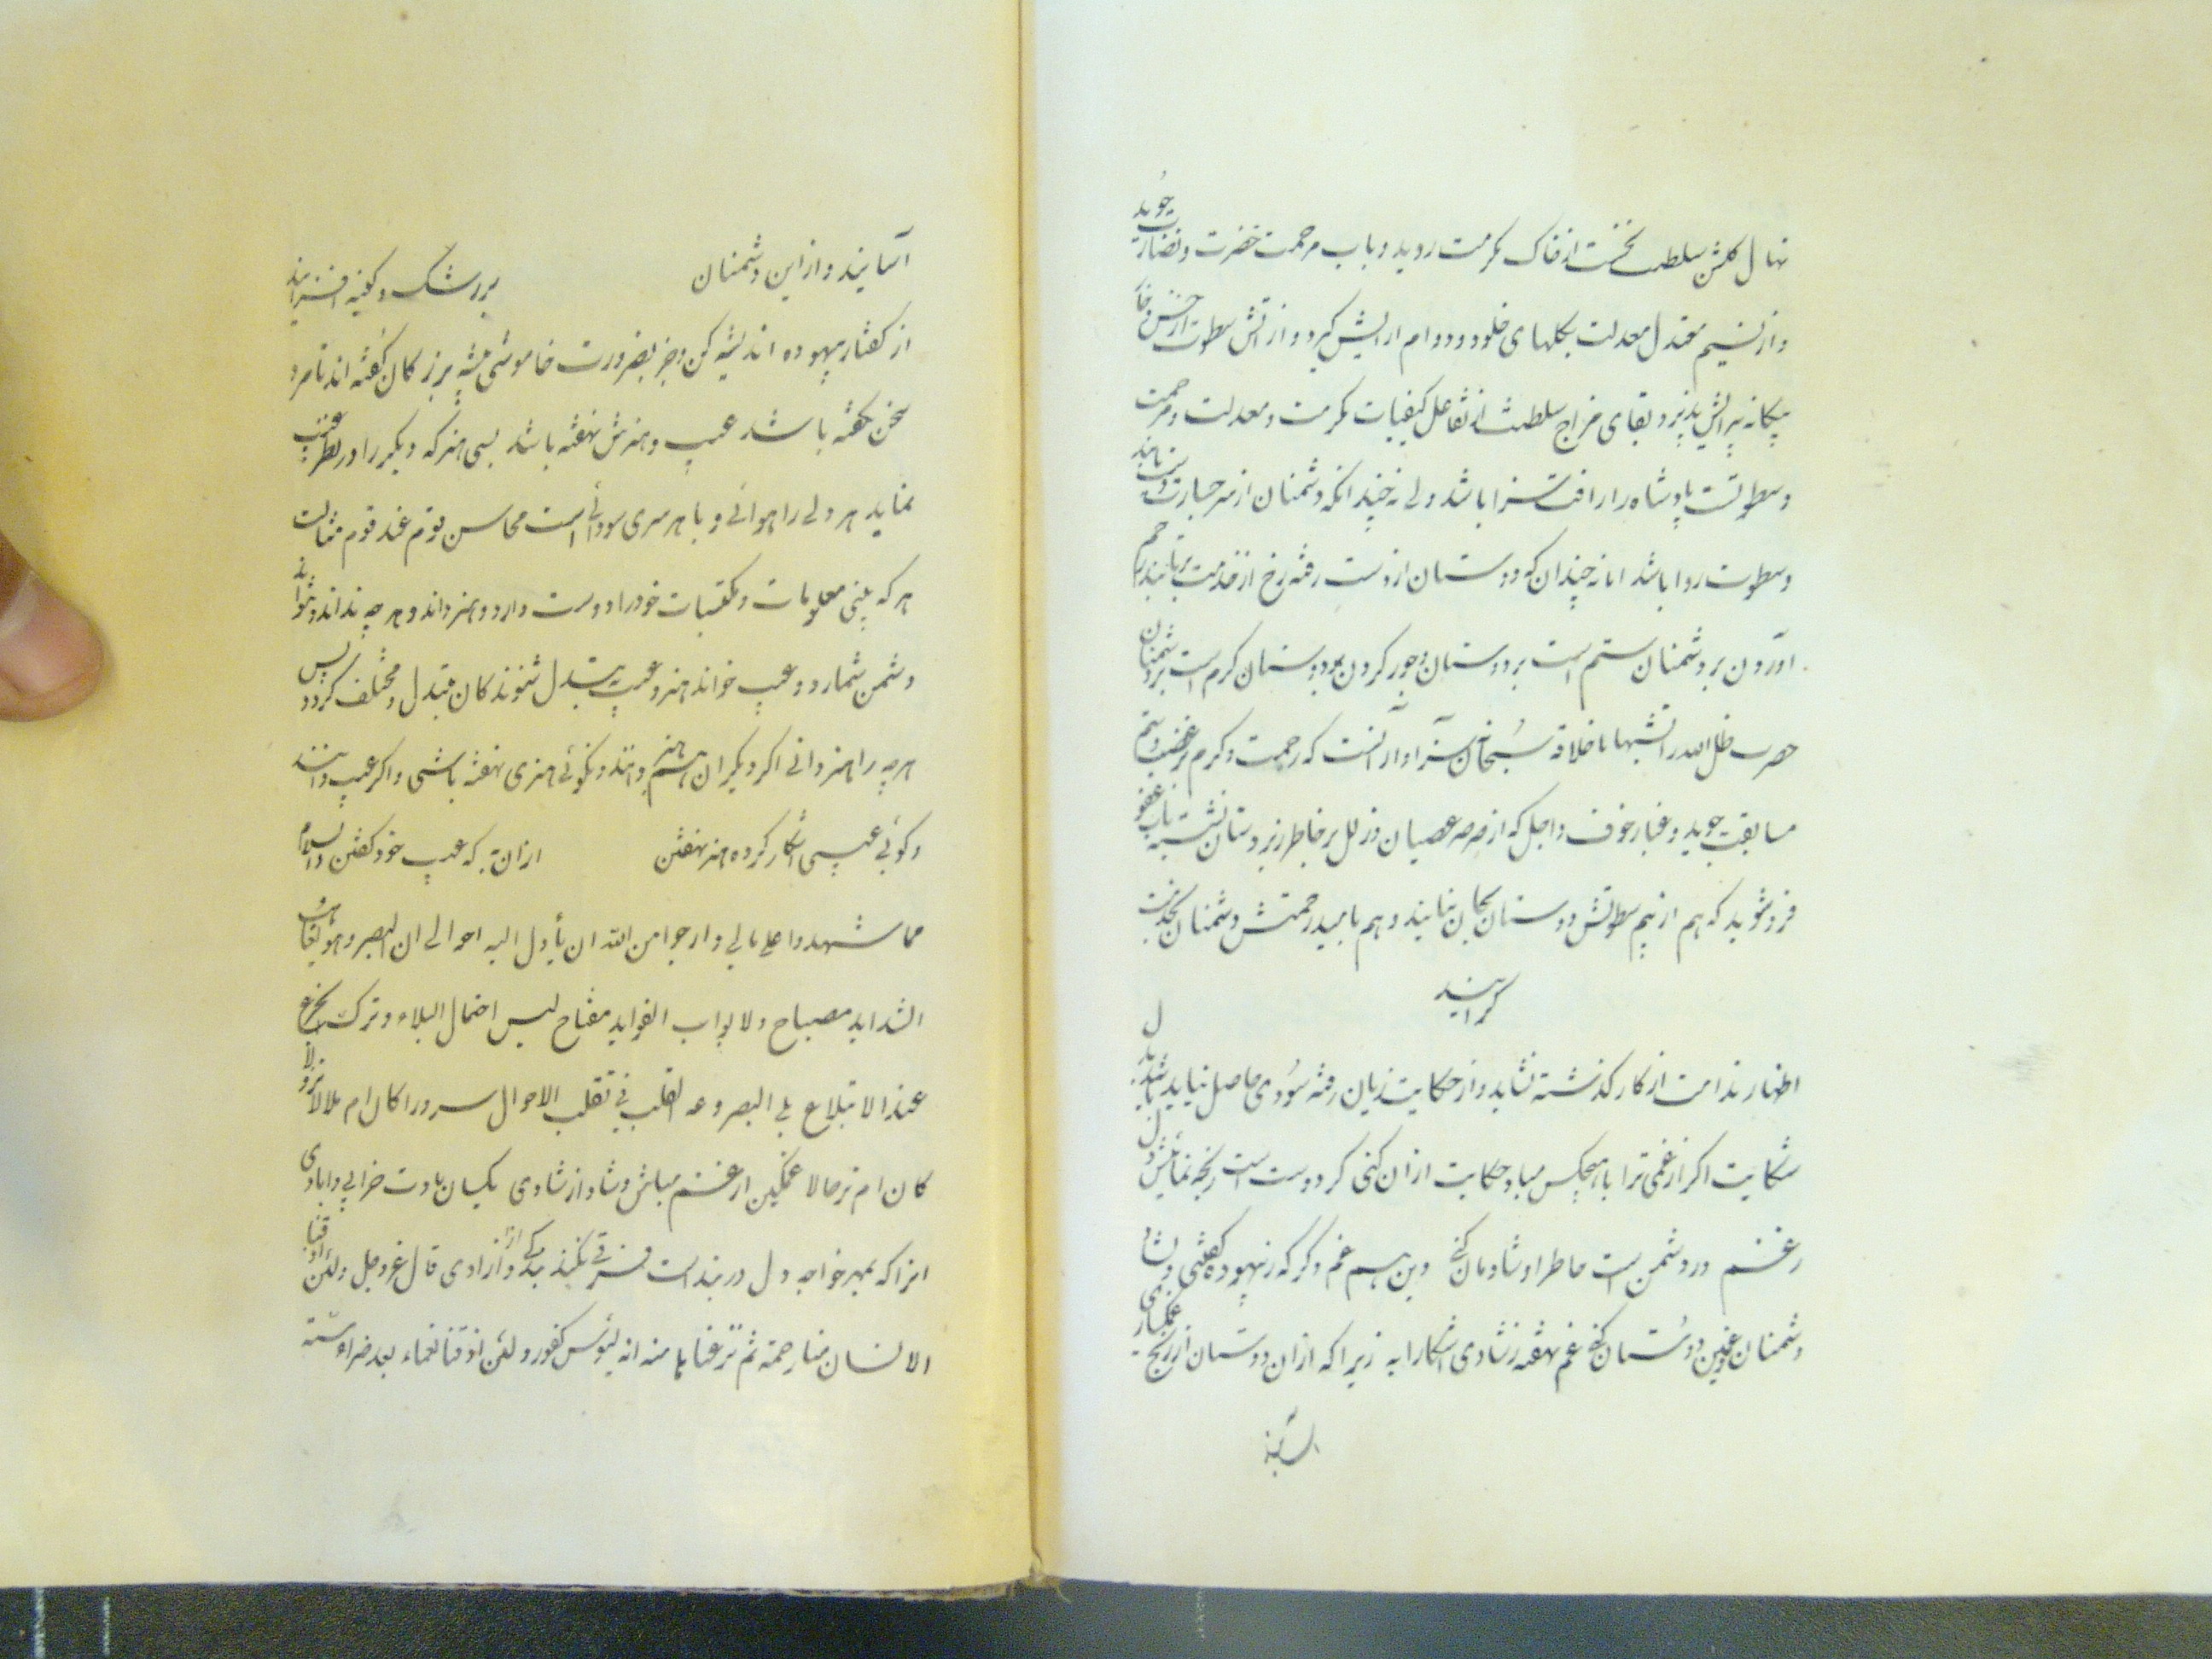 نهال گلشن سلطنت نخست از خاک مکرمت روید و باب مرحمت خضرت و نضارت جوید
و از نسیم معتدل معدلت بگلهای خلود و دوام ارایش گیرد و از اتش سطوت از خس و خار
بیگانه پیرایش پذیرد بقای مزاج سلطنت از تفاعل کیفیات مکرمت و معدلت و مرحمت
و سطوتست پادشاه را رافت سزا باشد ولی نه چندانکه دشمنان از سر جسارت
و سطوت روا باشد اما نه چندان که دوستان از دست رفته رخ از خدمت برتابند رحم
اوردن بر دشمنان ستم است بر دوستان و جور کردن بدوستان کرم است بر دشمنان
حضرت ظل الله را سزاوار آنست که رحمت و کرم بر غضب و ستم
مسابقت جوید و غبار خوف و اجل که از صرصر عصیان و زلل بر خاطر زیردستان نشسته باب عفو
فرو شوید که هم از بیم سطوتش دوستان بجان نیایند و هم بامید رحمتش دشمنان بخدمت
گرایند
اظهار ندامت از کار گذشته نشاید و از حکایت زیان رفته سودی حاصل نیاید
شکایت اگر از غمی ترا با هیچکس مباد حکایت ازان کنی گر دوست است رنجه نمائیش دل
ز غم ور دشمن است خاطر او شادمان کنی وین هم غم دگر که ز بیهوده گفتنی
دشمنان و غمگین دوستان کنی غم نهفته ز شادی اشکارا به زیرا که ازان دوستان از رنج
آسایند و ازاین دشمنان بر رشک و کینه افزایند
از گفتار بیهوده اندیشه کن و جز بضرورت خاموشی پیشه بزرگان گفته اند تا مرد
سخن نگفته باشد عیب و هنرش نهفته باشد بسی هنر که دیگر را در نظر عیب
نماید هر دلی را هوائی و با هر سری سودائی است محاسن قوم عند قوم مثالب
هر که بینی معلومات و مکتسبات خود را دوست دارد و هنر داند و هر چه نداند و نتواند
دشمن شمارد و عیب خواند هنر و عیب بتبدل شنوندگان متبدل و مختلف گردد پس
هر چه را هنر دانی اگر دیگران هم هنر دانند و نگوئی هنری نهفته باشی و اگر عیب دانند
و گوئی عیبی اشکار کرده هنر نهفتن ازان به که عیب خود گفتن والسلام
مما شهدوا علی بالی و ارجوا من الله ان یأول الیه احوالی ان البصر
الشداید مصباح و لابواب الفواید مفتاح لیس احتمال البلاء و ترک الجزع
عند الابتلاء علی البصر و عد القلب فی تقلب الاحوال سرورا کان ام ملالا
کان ام ترحالا غمگین از غم مباش و شاد از شادی یکسان بادت خرابی و ابادی
انرا که بمهر خواجه دل در بند است فرقی نکند بندگی از آزادی قال عز و جل و لئن اذقنا
الانسان منا رحمة ثم نزعناها منه انه لیؤس کفور و لئن اذقناه نعماء بعد ضراء مسته